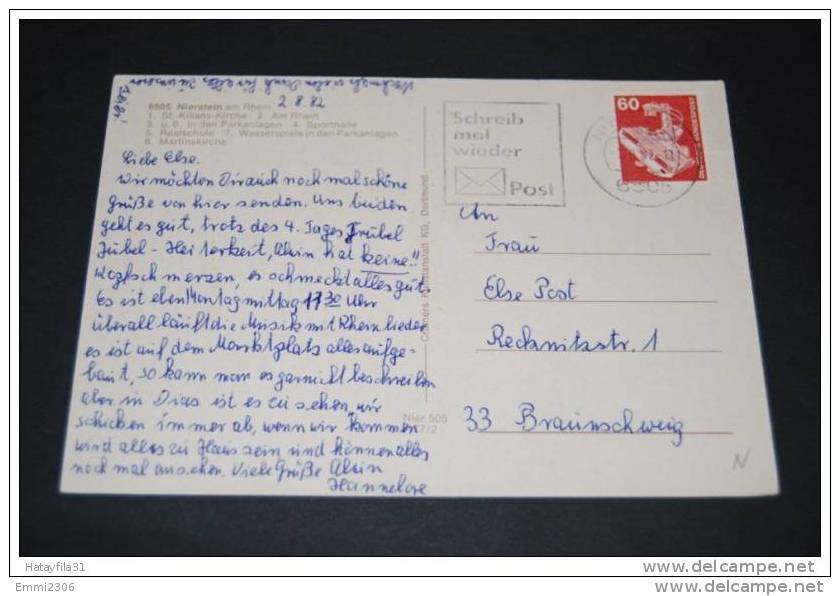 Nochmals vielen Dank für alles
2.8.82
6505 Nierstein am Rhein
1. St.-Kilians-Kirche 2. Am Rhein
3. u. 6. in den Parkanlagen 4. Sporthalle
5. Realschule 7. Wasserspiele in den Parkanlagen
8. Martinskirche
Liebe Else.
Wir möchten Dir auch noch mal schöne
Grüße von hier senden. Uns beiden
geht es gut, trotz des 4. Tages Trubel
Jubel - Heiterkeit, Alwin hat keine!!
Kopfschmerzen, es schmeckt alles gut.
Es ist eben Montagmittag 17 30 Uhr
überall läuft die Musik mit Rheinlieder
es ist auf dem Marktplatz alles aufge-
baut, so kann man es garnicht beschreiben
aber in Dias ist es zu sehen, wir
schicken immer ab, wenn wir kommen
wird alles zu Haus sein und können alles
noch mal ansehen. Viele Grüße Alwin
Hannelore
Cramers Kunstanstalt KG, Dortmund
Nier 505
7/2
Schreib
mal
wieder
Post
60
DEUTSCHE BUNDESPOST
6505
An
Frau
Else Post
Recknitzstr. 1
33 Braunschweig
N
Hatayfila31
www.delcampe.net
Emmi2306
www.delcampe.net